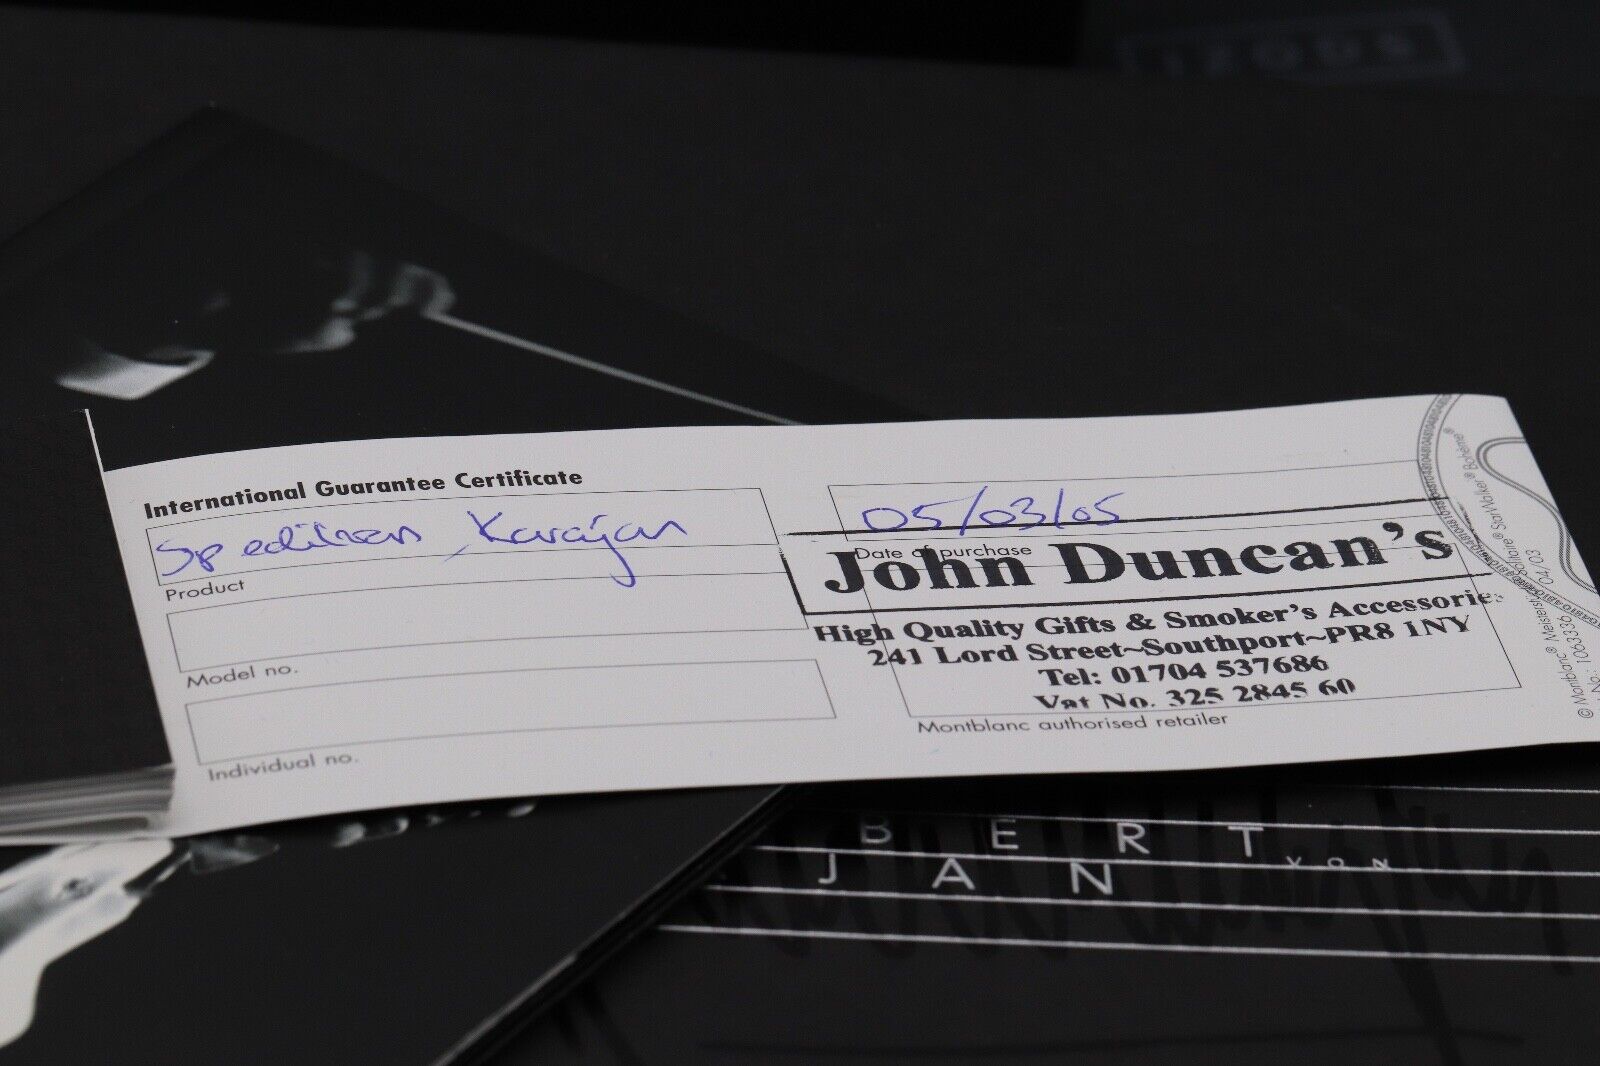 International Guarantee Certificate
Sp edition Karajan
Product
Model no.
Individual no.
05/03/05
Date of purchase
John Duncan's
High Quality Gifts & Smoker's Accessories
241 Lord Street~Southport~PR8 1NY
Tel: 01704 537686
Vat No. 325 2845 60
Montblanc authorised retailer
© Montblanc® Meisterstück® Solitaire® StarWalker® Bohème®
No.: 1063336 04/03
BERT VON
JAN